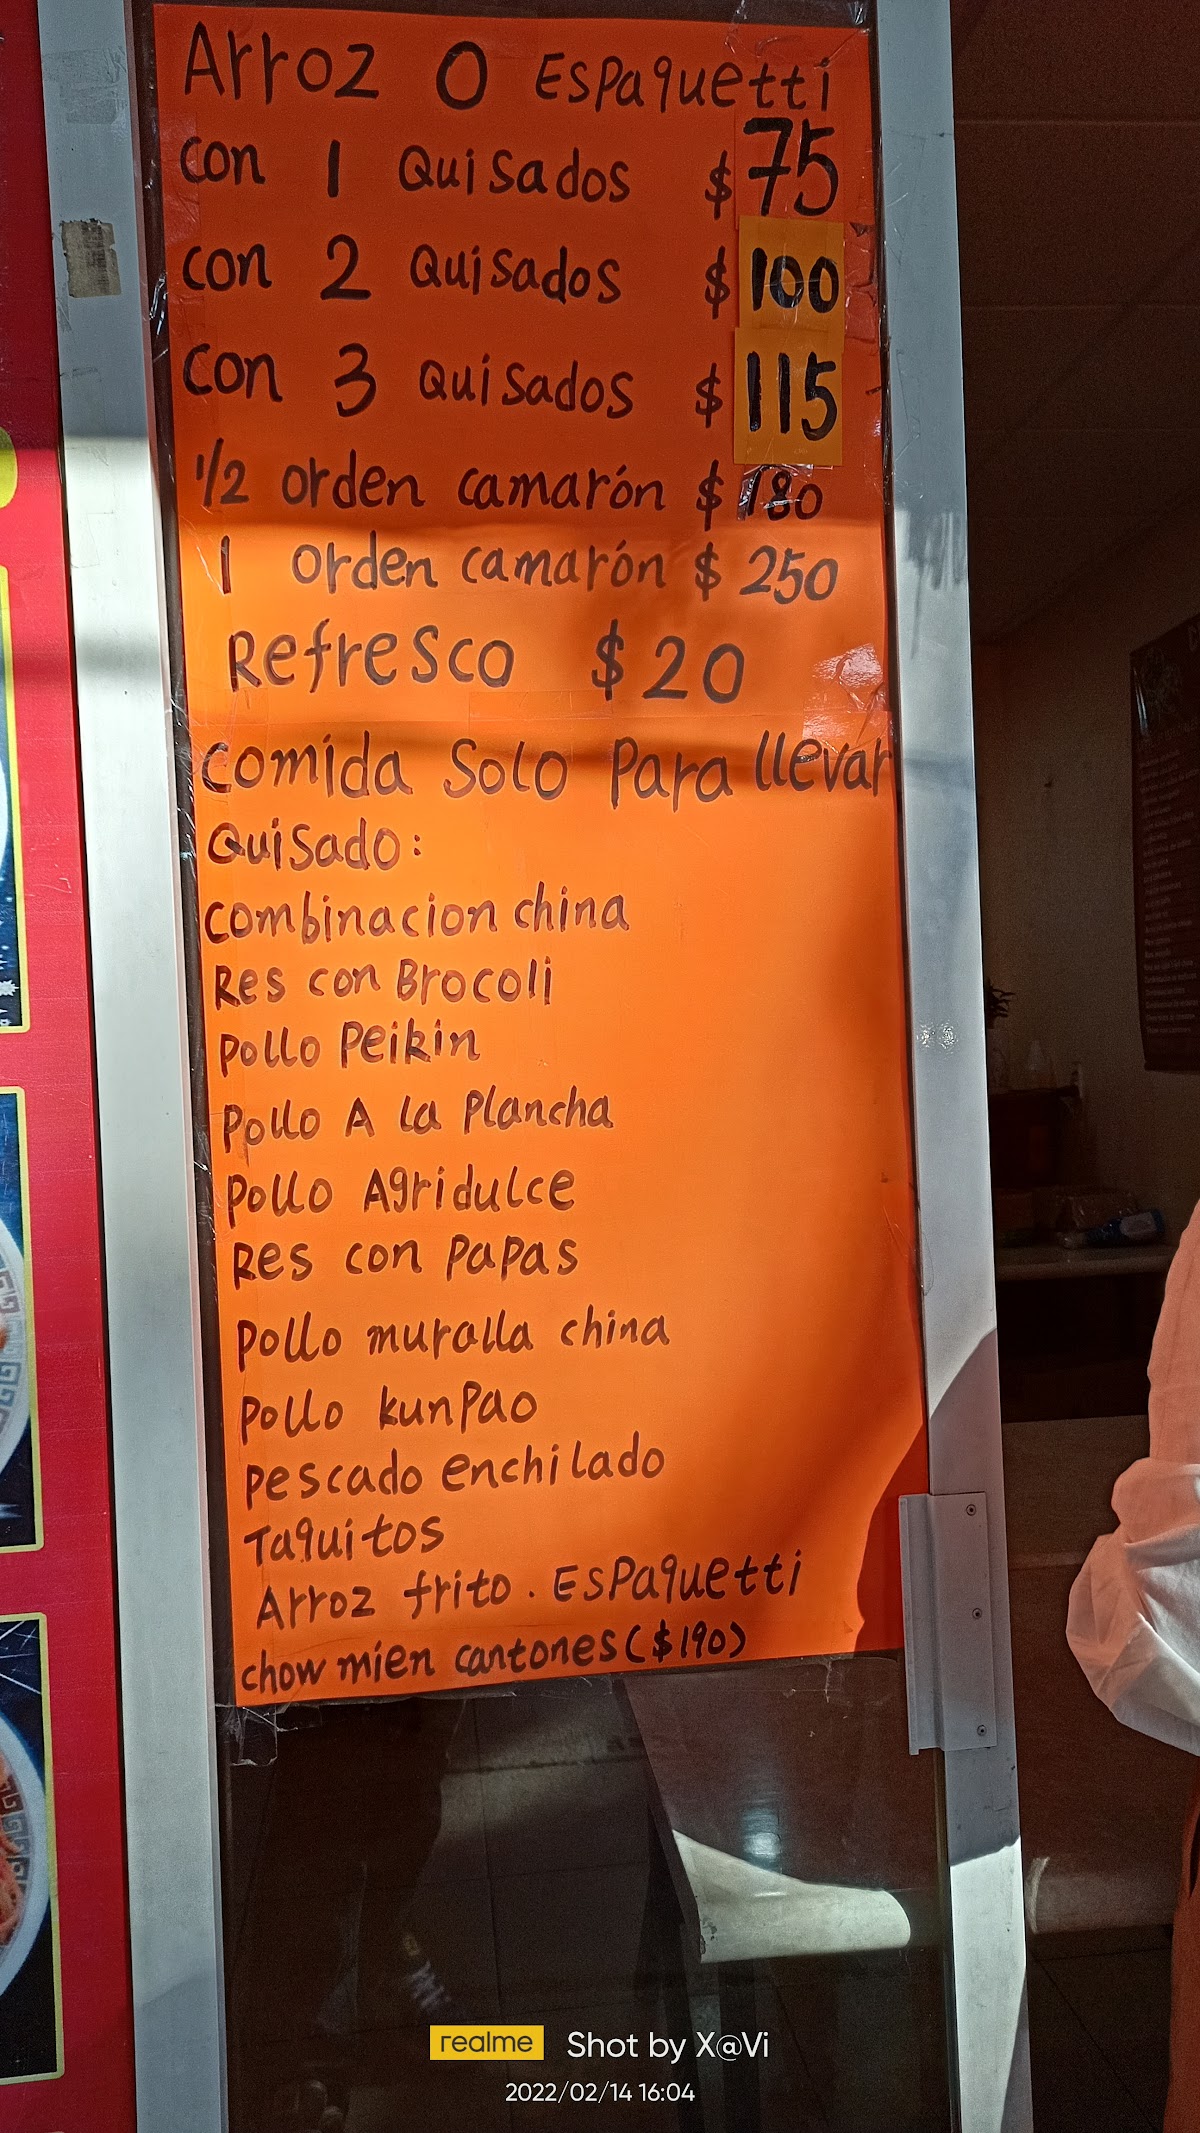 Arroz O Espaquetti
con 1 Quisados $75
con 2 Quisados $100
con 3 Quisados $115
1/2 orden camarón $180
1 orden camarón $250
Refresco $20
comida Solo Para llevar
Quisado:
combinacion china
Res con Brocoli
Pollo Peikin
Pollo A la Plancha
Pollo Agridulce
Res con papas
pollo muralla china
pollo kunpao
pescado enchilado
Taquitos
Arroz frito. Espaquetti
chow mien cantones ($190)
realme Shot by X@Vi
2022/02/14 16:04